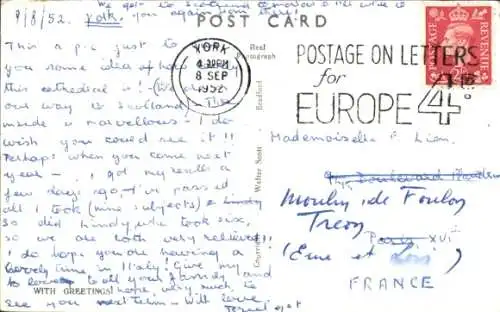 9/8/52. We get to Scotland
York.
POST CARD
This a p.c. just to
you some idea of how
this cathedral is! -
our way is Scotland - The
inside is marvellous! I do
wish you could see it!!
Perhaps when you come next
year - I got my results a
few days ago, I've passed
all I took (nine subjects) & Lindy
so did Lindy who took six,
so we are both very relieved!!
I do hope you are having a
lovely time in Italy! Give my
to all your family and
home, very much, to
see you next term - With love
WITH GREETINGS
Real
Photograph
Walter Scott
Bradford
Copyright
YORK
4.30PM
8 SEP
1952
POSTAGE ON LETTERS
for
EUROPE 4D.
POSTAGE
REVENUE
Mademoiselle E Lien.
Boulevard
Moulin de Foulon
Treon
Paris XVI
(Eure et Loir)
FRANCE